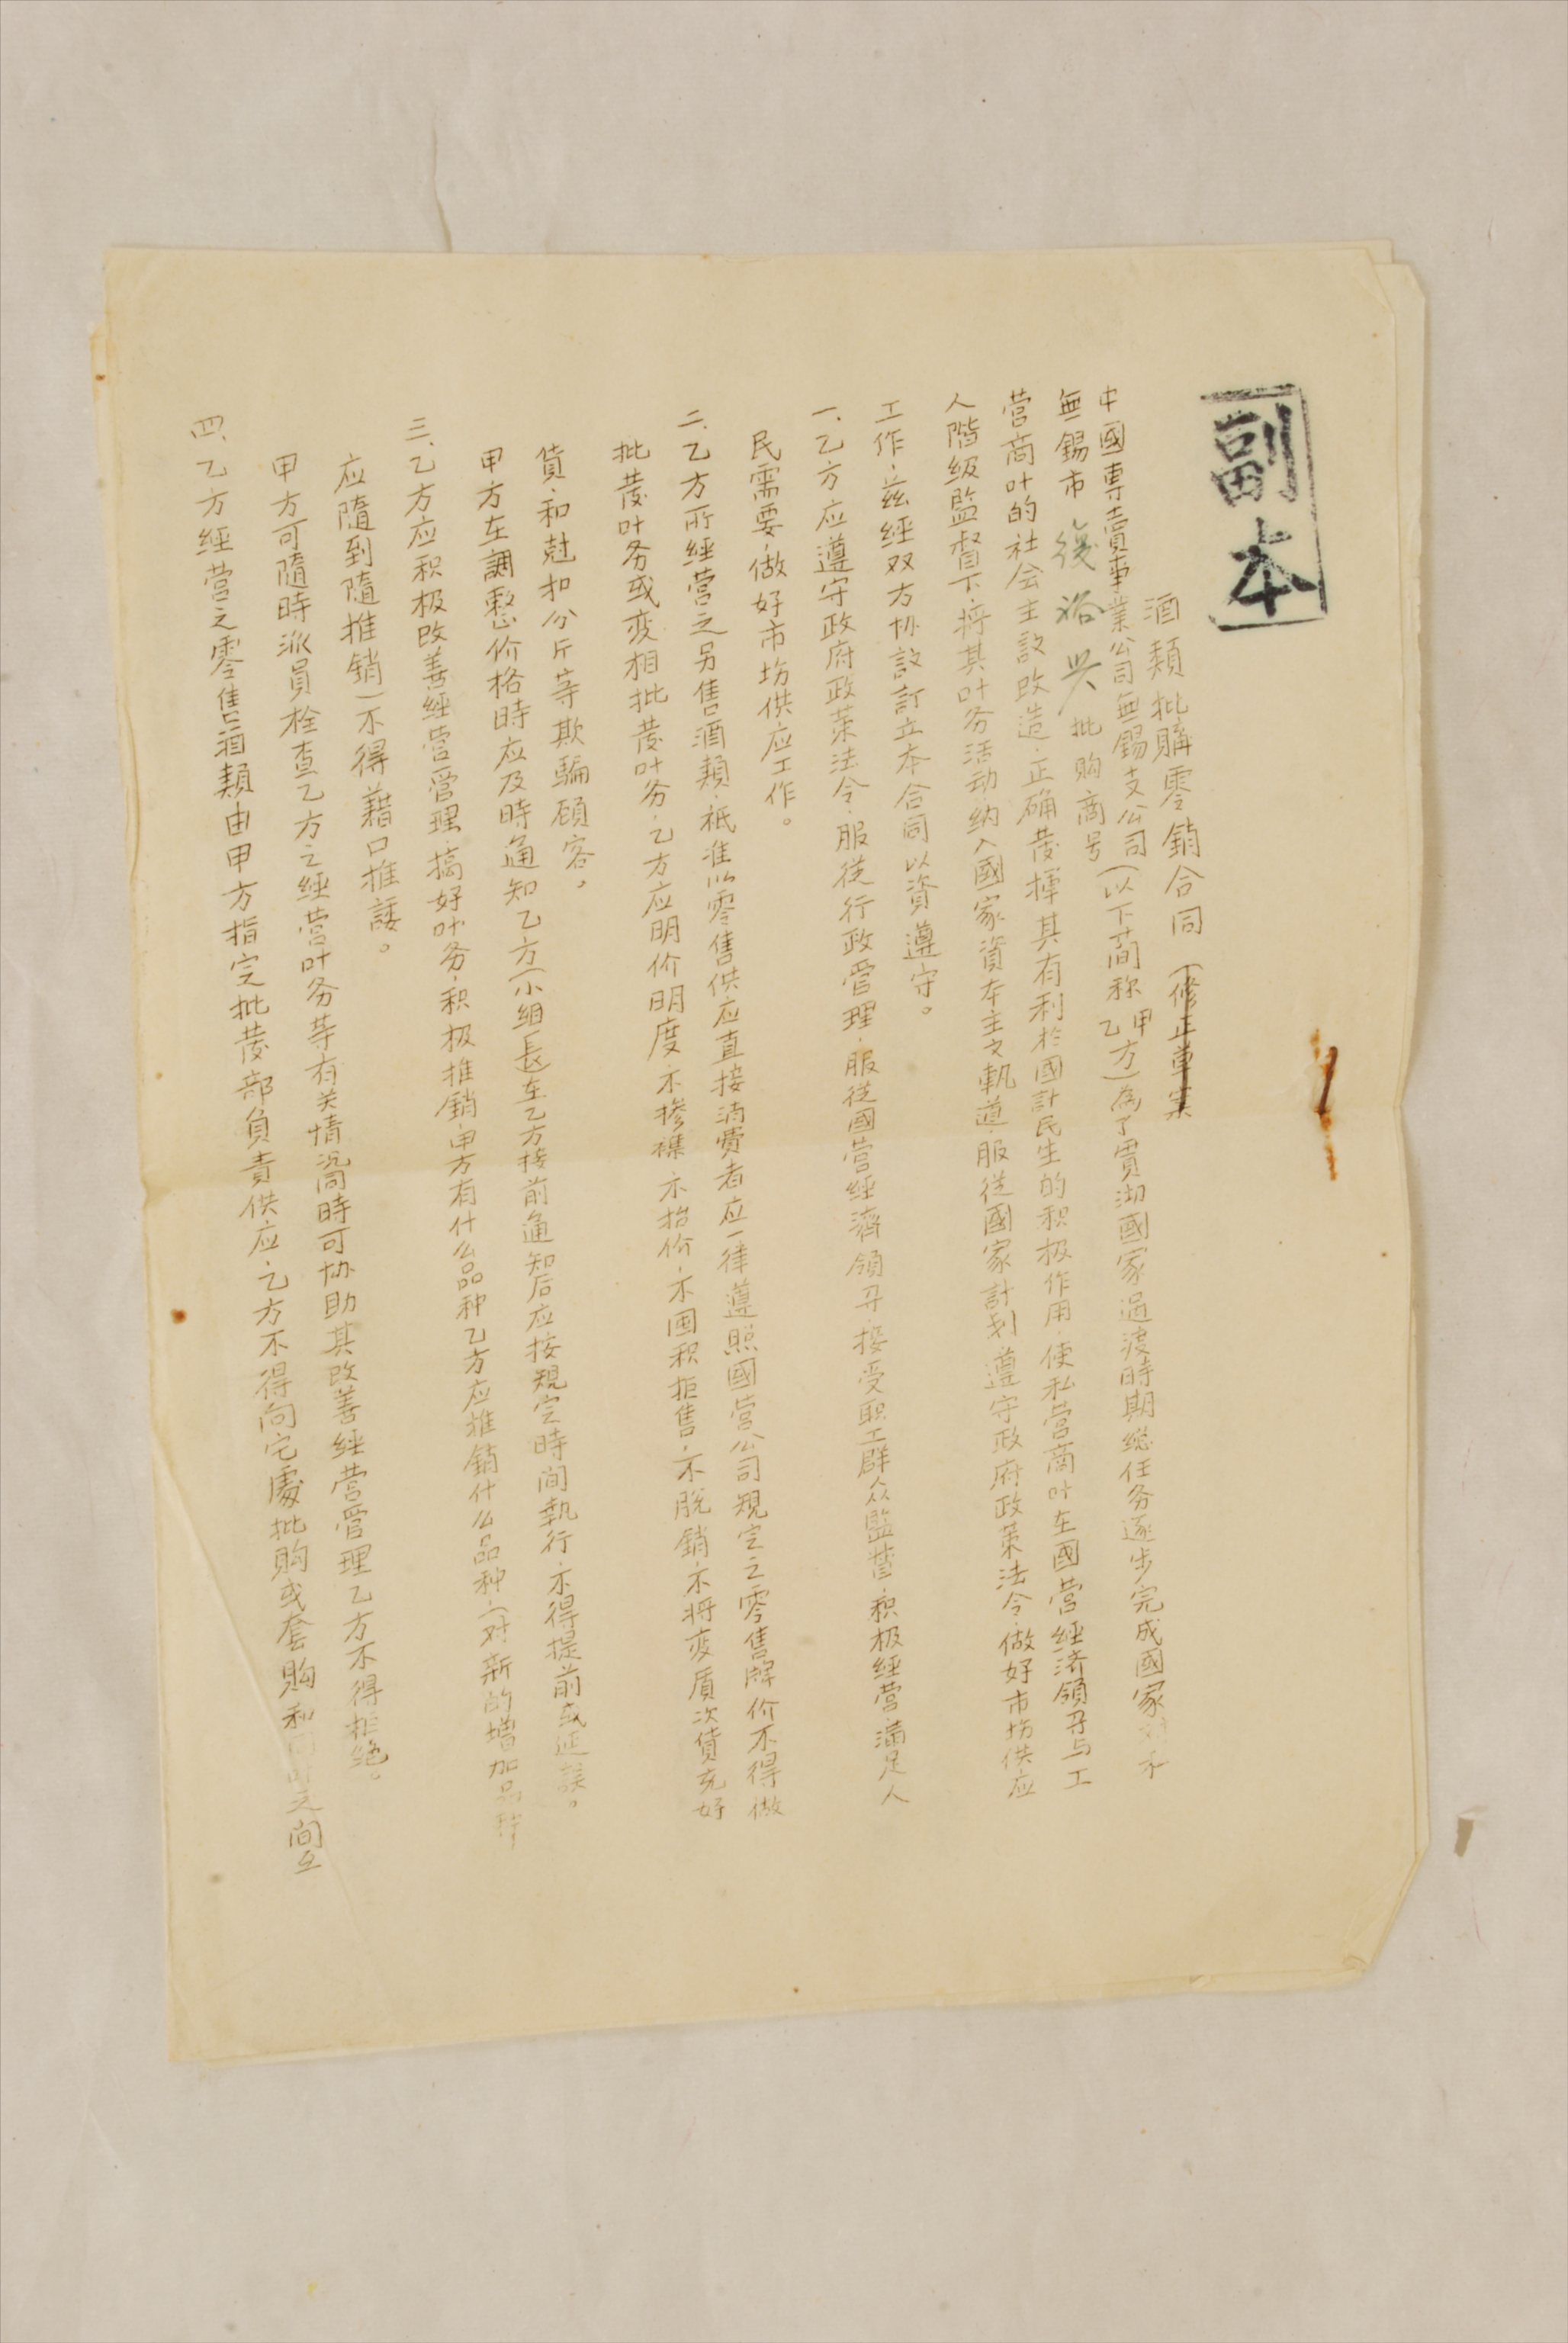 副本
酒類批購零銷合同（修正草案
中國專賣事業公司無錫支公司（以下萠称甲
無錫市 復裕兴 批购商号 乙方）為了貫沏國家過渡時期総任务逐步完成國家对私
营商叶的社会主設改造．正确發揮其有利於國計民生的积极作用．使私营商叶在國营經济領导与工
人階級監督下．将其叶务活动纳入國家資本主文軌道．服從國家計划．遵守政府政策法令．做好市場供应
工作．茲經双方协設訂立本合同以資遵守。
一、乙方应遵守政府政策法令．服從行政管理．服從國营經濟領导．接受职工群众監督．积极經营．滿足人
民需要．做好市場供应工作。
二、乙方所經营之另售酒類．祇准以零售供应直接消費者应一律遵照國营公司規定之零售牌价不得做
批發叶务或变相批發叶务．乙方应明价明度．不摻襍．不抬价．不囤积拒售．不脫銷．不将变质次貨充好
貨．和尅扣分斤等欺騙顾客。
甲方在調整价格時应及時通知乙方（小組長在乙方接前通知后应按規定時间執行．不得提前或延誤。
三、乙方应积极改善經营管理．搞好叶务．积极推銷．甲方有什么品种乙方应推銷什么品种．（对新的增加品种
应隨到隨推銷）不得藉口推諉。
甲方可隨時派員栓查乙方之經营叶务等有关情况同時可协助其改善經营管理乙方不得拒絕。
四、乙方經营之零售酒類由甲方指定批發部負責供应．乙方不得向它處批购或套购和同叶之间互